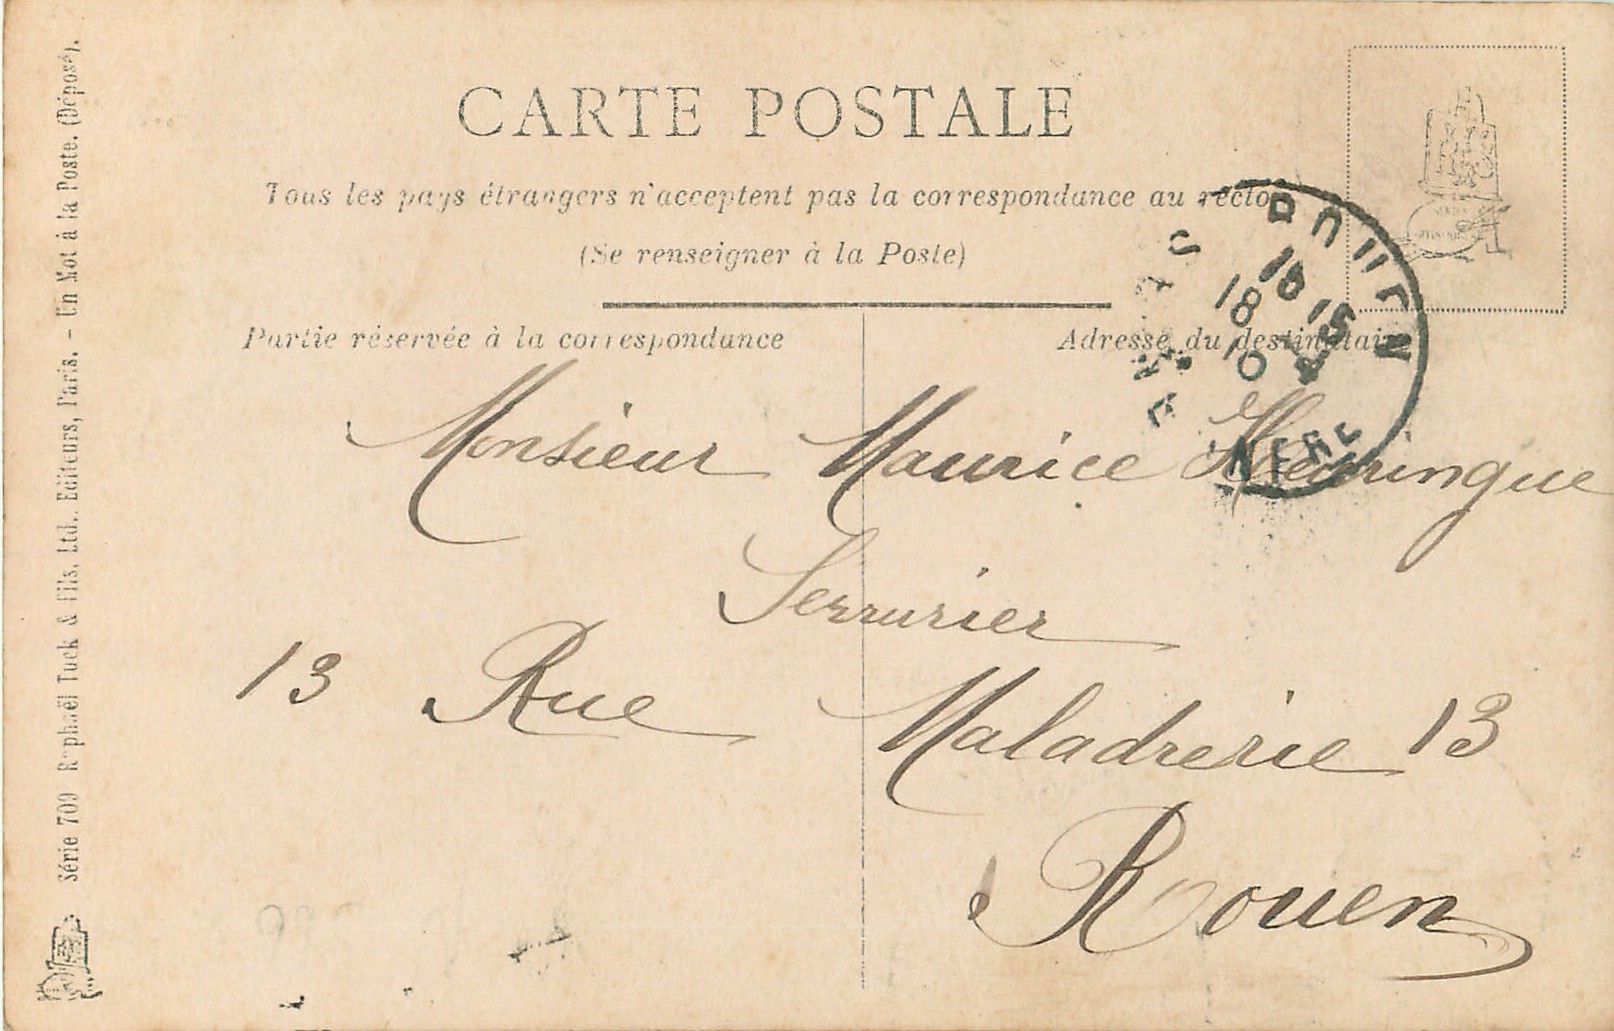 CARTE POSTALE
Tous les pays étrangers n'acceptent pas la correspondance au recto
(Se renseigner à la Poste)
Partie réservée à la correspondance
Adresse du destinataire
ROUEN
16 15
18
10
Monsieur Maurice
Serrurier
13 Rue Maladrerie 13
Rouen
Série 709 Raphaël Tuck & Fils, Ltd., Editeurs, Paris. - Un Mot à la Poste. (Déposé).